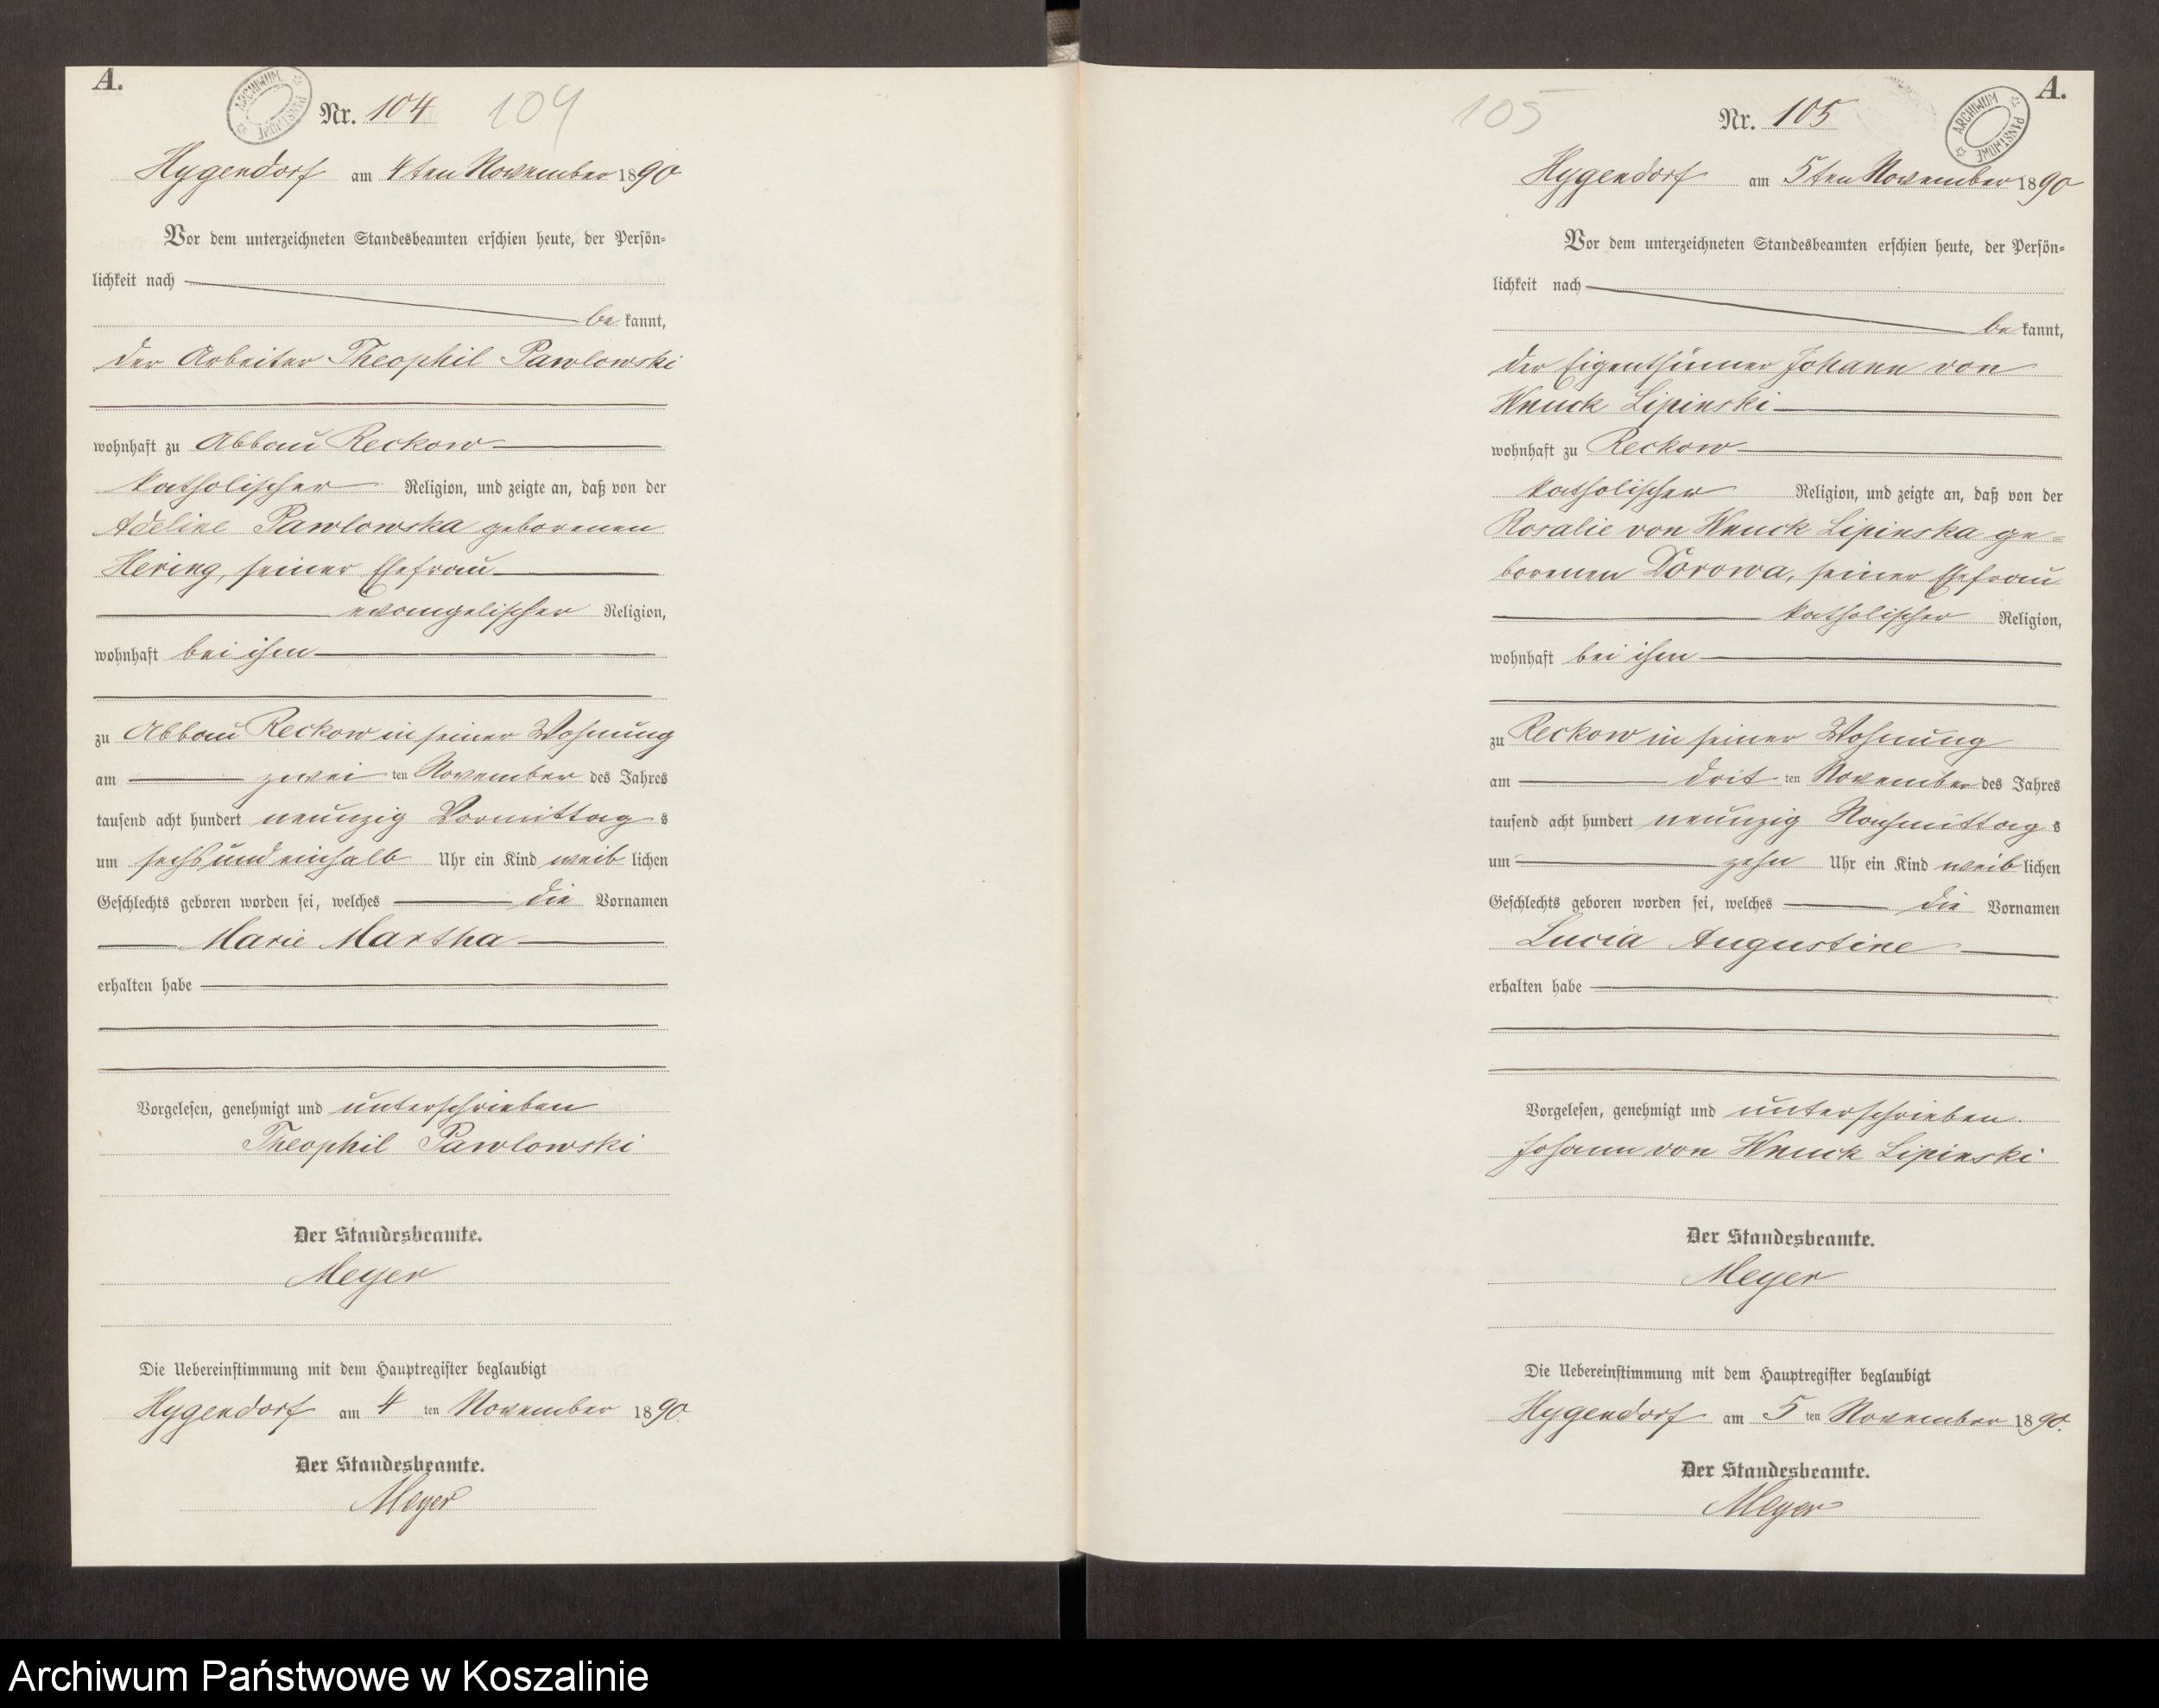 A.
ARCHIWUM PAŃSTWOWE
Nr. 104 104
Hygendorf am 4ten November 1890
Vor dem unterzeichneten Standesbeamten erschien heute, der Persön-
lichkeit nach
be kannt,
der Arbeiter Theophil Pawlowski
wohnhaft zu Abbau Reckow
katholischer Religion, und zeigte an, daß von der
Adeline Pawlowska geborenen
Hering, seiner Ehefrau
evangelischer Religion,
wohnhaft bei ihm
zu Abbau Reckow in seiner Wohnung
am zwei ten November des Jahres
tausend acht hundert neunzig Vormittag s
um sechs und einhalb Uhr ein Kind weib lichen
Geschlechts geboren worden sei, welches die Vornamen
Marie Martha
erhalten habe
Vorgelesen, genehmigt und unterschrieben
Theophil Pawlowski
Der Standesbeamte.
Meyer
Die Uebereinstimmung mit dem Hauptregister beglaubigt
Hygendorf am 4 ten November 1890.
Der Standesbeamte.
Meyer
A.
ARCHIWUM PAŃSTWOWE
105 Nr. 105
Hygendorf am 5ten November 1890
Vor dem unterzeichneten Standesbeamten erschien heute, der Persön-
lichkeit nach
be kannt,
der Eigenthümer Johann von
Wnuck Lipinski
wohnhaft zu Reckow
katholischer Religion, und zeigte an, daß von der
Rosalie von Wnuck Lipinska ge-
borenen Dorowa, seiner Ehefrau
katholischer Religion,
wohnhaft bei ihm
zu Reckow in seiner Wohnung
am drit ten November des Jahres
tausend acht hundert neunzig Nachmittag s
um zehn Uhr ein Kind weib lichen
Geschlechts geboren worden sei, welches die Vornamen
Lucia Augustine
erhalten habe
Vorgelesen, genehmigt und unterschrieben.
Johann von Wnuck Lipinski
Der Standesbeamte.
Meyer
Die Uebereinstimmung mit dem Hauptregister beglaubigt
Hygendorf am 5 ten November 1890.
Der Standesbeamte.
Meyer
Archiwum Państwowe w Koszalinie